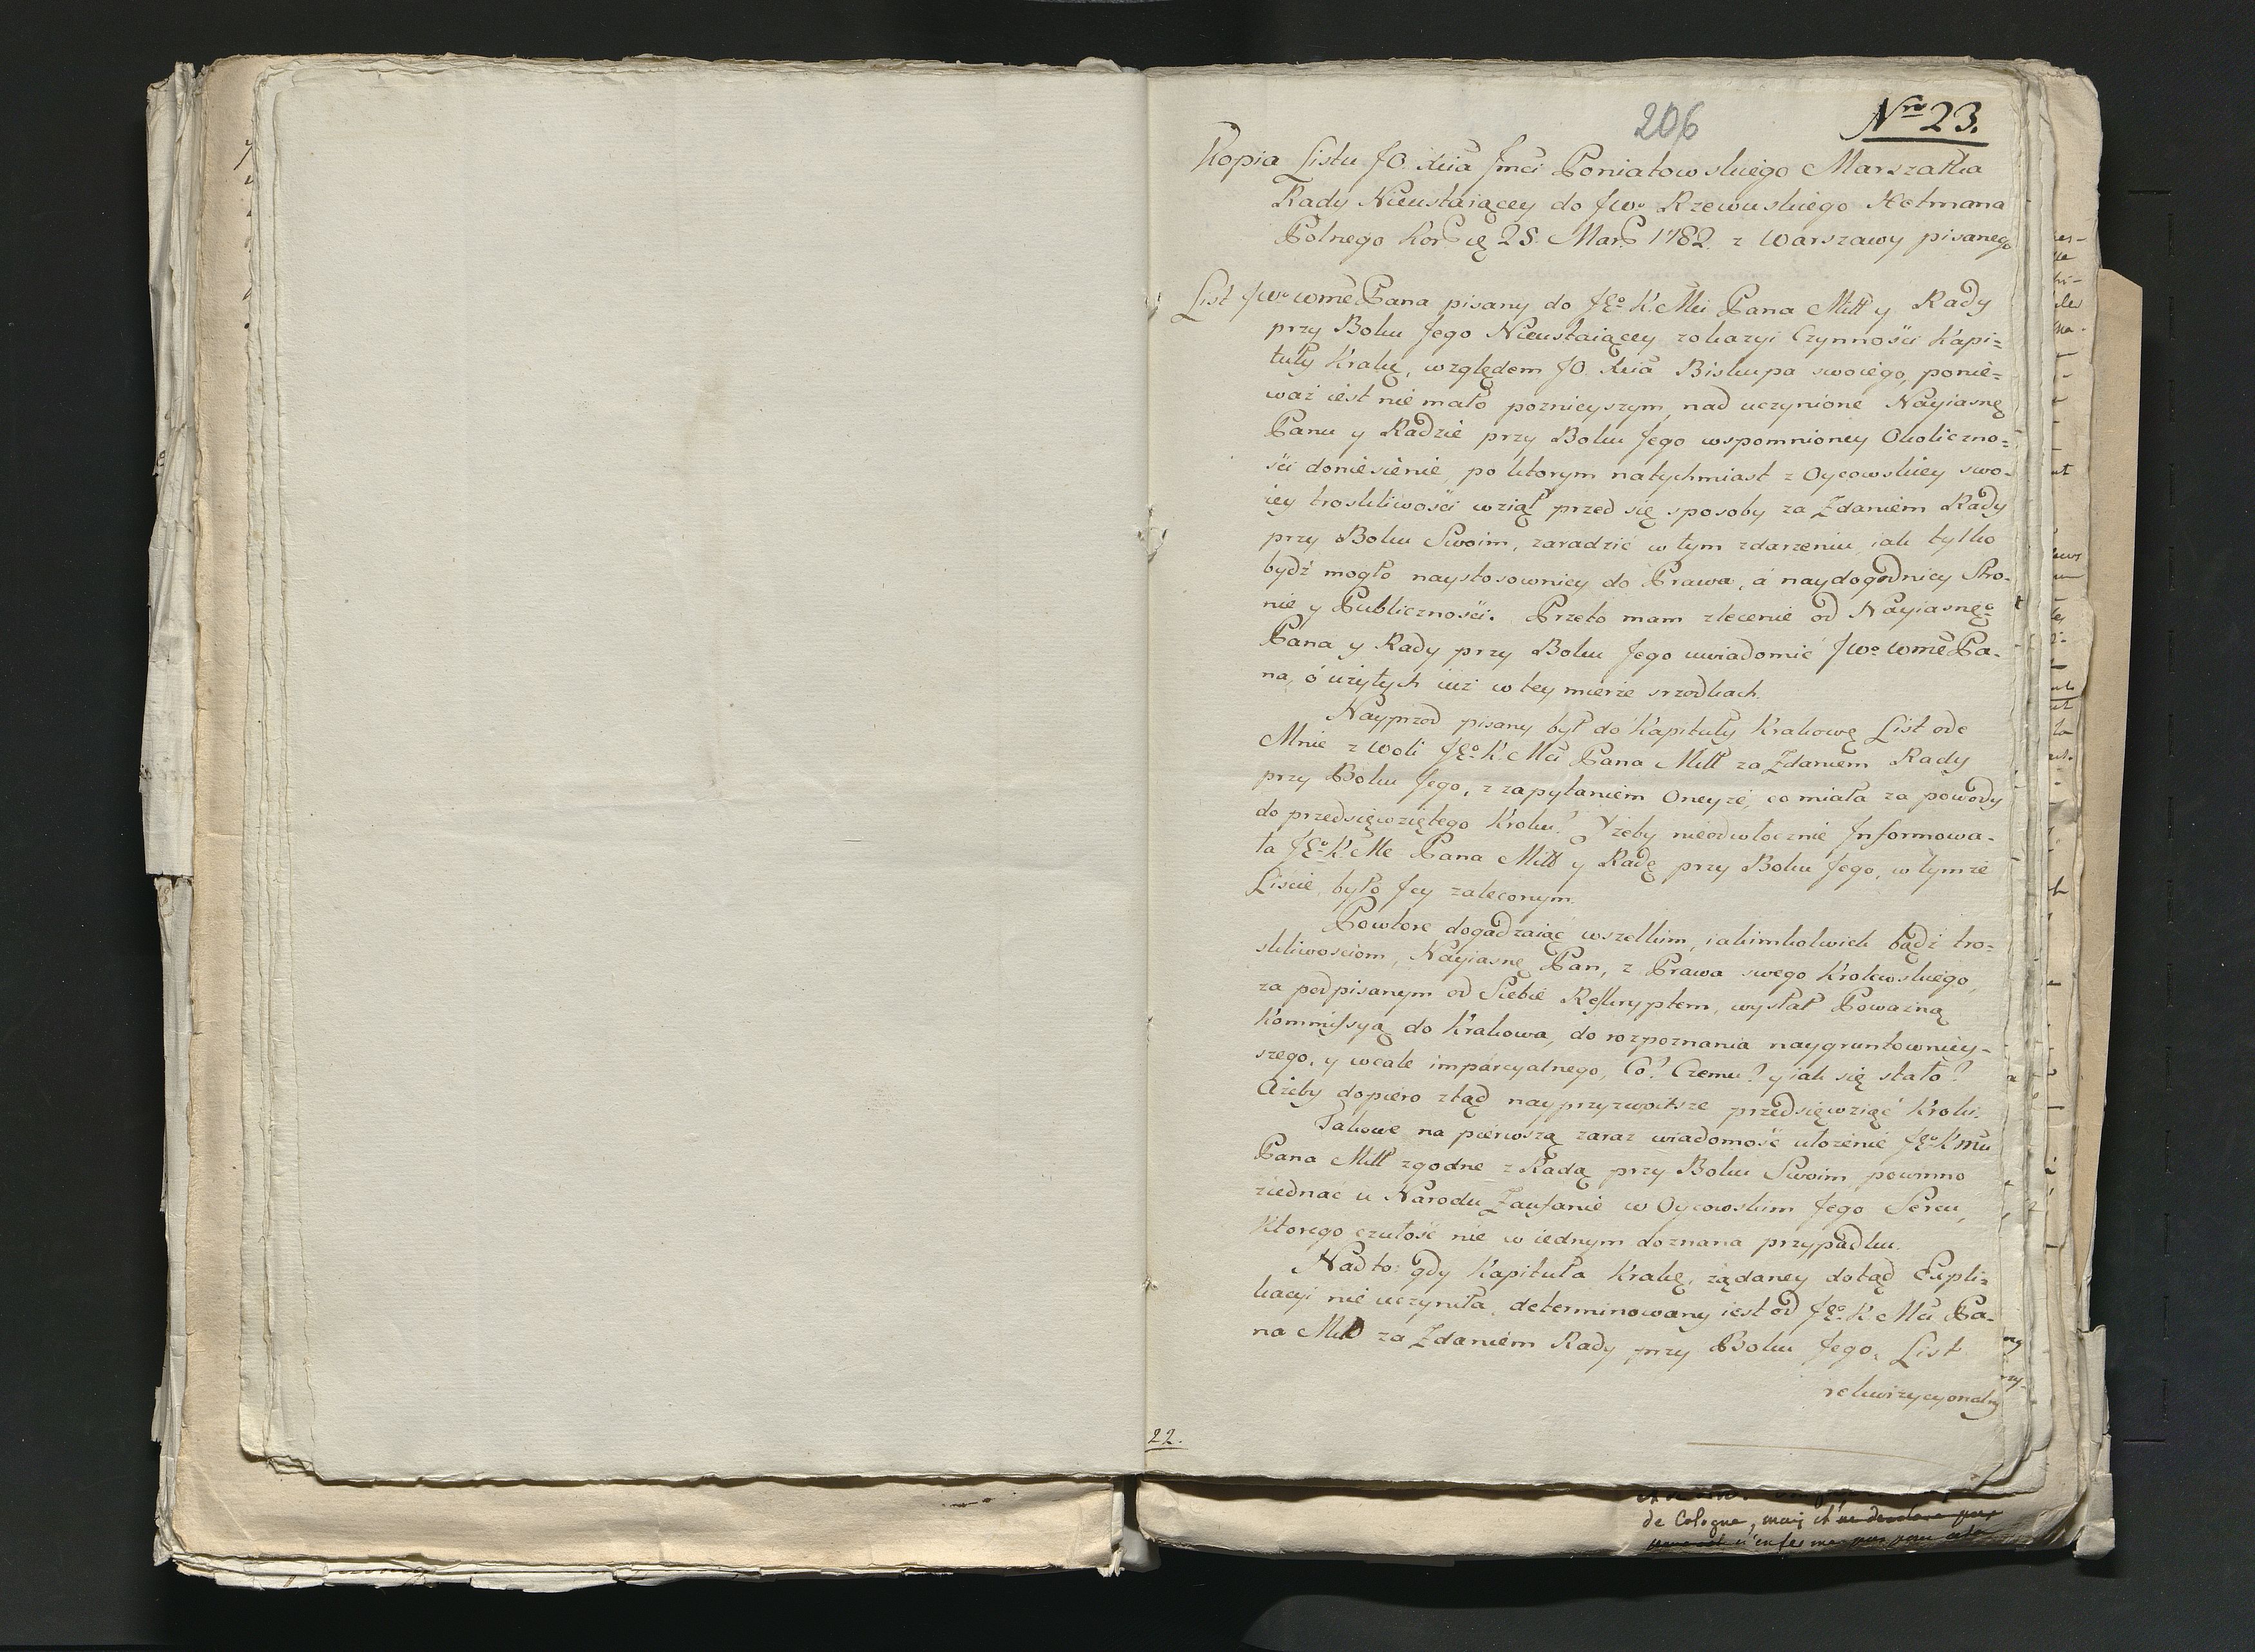 206
Nro 23.
Kopia Listu JO. Xcia Jmci Poniatowskiego Marszałka
Rady Nieustaiącey do JWo Rzewuskiego Hetmana
Polnego Kor. 28. Mar. 1782. z Warszawy pisanego
List JWo WmćPana pisany do JEo K. Mci Pana Miłł y Rady
przy Boku Jego Nieustaiącey zokazyi Czynności Kapi=
tuły Krakę, względem JO. Xcia Biskupa swoiego, ponie=
waż iest nie mało poznieyszym, nad uczynione Nayiasnę
Panu y Radzie przy Boku Jego wspomnioney Okoliczno=
ści doniesienie, po ktorym natychmiast z Oycowskiey swo-
iey troskliwości wziął przed się sposoby za Zdaniem Rady
przy Boku Swoim, zaradzić w tym zdarzeniu, iak tylko
bydź mogło naystosowniey do Prawa, á naydogodniey Stro-
nie y Publiczności. Przeto mam zlecenie od Nayiasnego
Pana y Rady przy Boku Jego uwiadomić JWo WmćPa-
na, ó użytych iuż w tey mierze srzodkach.
Nayprzod pisany był do Kapituły Krakowę List ode
Mnie z Woli JEo K. Mci Pana Miłł za Zdaniem Rady
przy Boku Jego, z zapytaniem Oneyże, co miała za powody
do przedsięwziętego Kroku? Y żeby nieodwłocznie Jnformowa-
ła JEo K. Mc Pana Miłł y Radę przy Boku Jego, w tymże
Liscie, było Jey zaleconym.
Powtore dogadzaiąc wszelkim, iakimkolwiek bądź tro-
skliwościom, Nayiasnę Pan, z Prawa swego Krolewskiego,
za podpisanym od Siebie Reskryptem, wysłał Poważną
Kommissyą do Krakowa, do rozpoznania naygruntowniey-
szego, y wcale impárcyalnego, Co? Czemu? y iak się stało?
Ażeby dopiero ztąd nayprzyzwoitsze przedsięwziąć Kroki.
Takowe na pierwszą zaraz wiadomość ułożenie JEo K Mci
Pana Miłł zgodne z Radą przy Boku Swoim, powinno
ziednać u Narodu Zaufanie w Oycowskim Jego Sercu,
Ktorego czułość nie w iednym doznana przypadku.
Nadto: gdy Kapituła Krakę, żądaney dotąd Expli=
kacyi nie uczyniła, determinowany iest od JEo K Mci Pa-
na Miłł za Zdaniem Rady przy Boku Jego, List
rekwizycyonalny
22.
de Cologne, mais